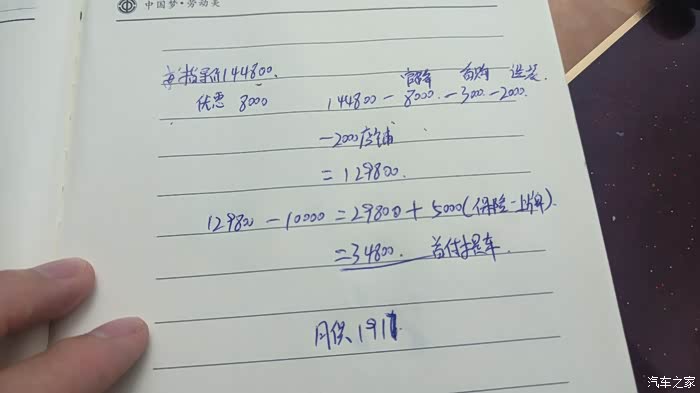 中国梦·劳动美
指导价144800.
优惠 8000
官降 置购 选装.
144800 - 8000 - 3000 - 2000.
-2000店铺
= 129800.
129800 - 10000 = 29800 + 5000(保险-上牌).
= 34800. 首付提车.
月供、1911
汽车之家